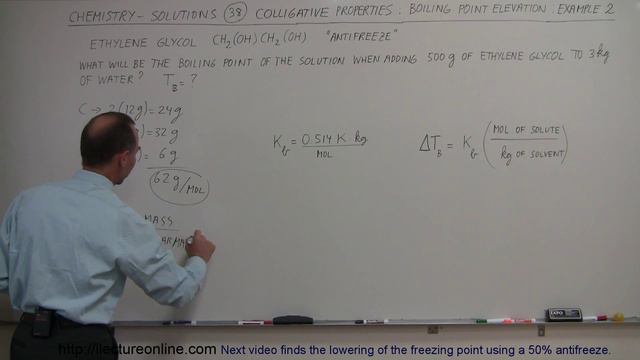 CHEMISTRY - SOLUTIONS 38 COLLIGATIVE PROPERTIES: BOILING POINT ELEVATION: EXAMPLE 2
ETHYLENE GLYCOL CH₂(OH)CH₂(OH) "ANTIFREEZE"
WHAT WILL BE THE BOILING POINT OF THE SOLUTION WHEN ADDING 500 g OF ETHYLENE GLYCOL TO 3 kg
OF WATER? T_B = ?
C → 2(12g) = 24g
) = 32g
) = 6g
62 g/MOL
MASS
K_b = 0.514 K kg / MOL
ΔT_B = K_b (MOL OF SOLUTE / kg OF SOLVENT)
http://ilectureonline.com Next video finds the lowering of the freezing point using a 50% antifreeze.